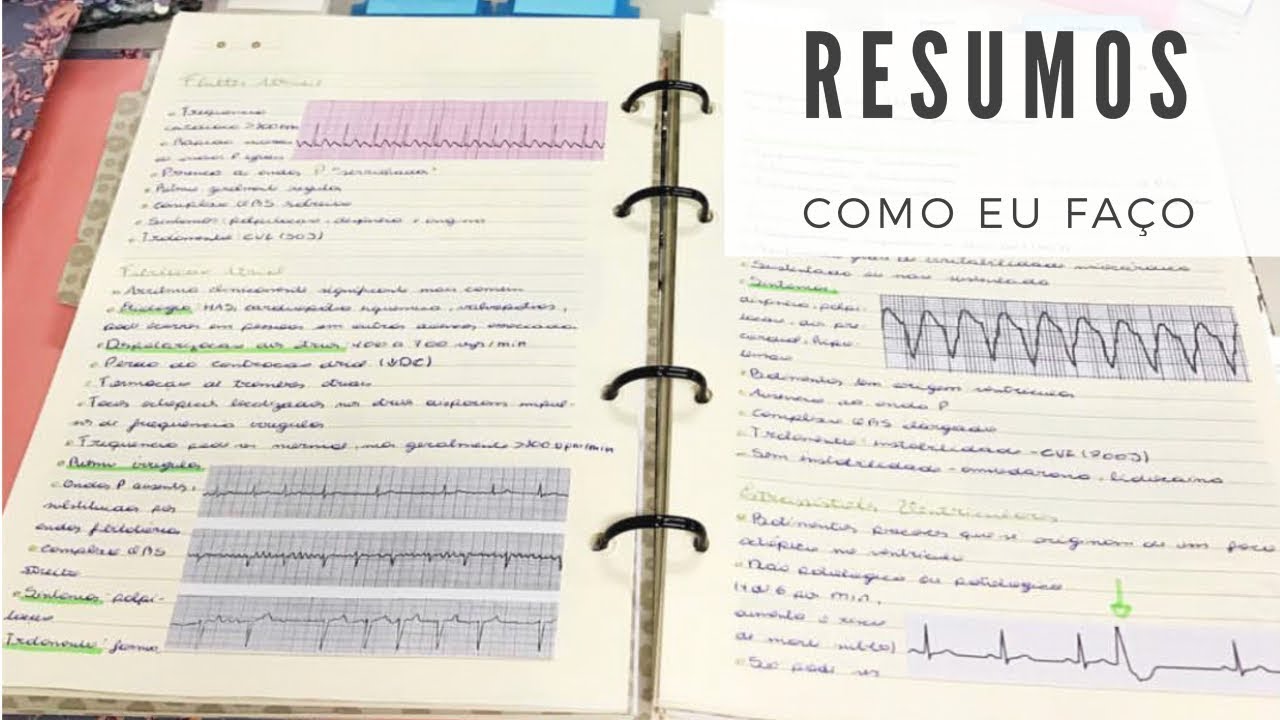 RESUMOS
COMO EU FAÇO
Flutter Atrial
Frequência
cardíaca >300 bpm
de ondas P
Presença de ondas P "serrilhadas"
Ritmo geralmente regular
Complexo QRS
Sintomas: palpitação, dispneia e angina
Tratamento: CVE (50J)
Fibrilação Atrial
Arritmia clinicamente significante mais comum
Etiologia: HAS, cardiopatia isquêmica, valvopatias,
pode ocorrer em pessoas sem outras doenças associadas
Despolarização dos átrios 400 a 700 vezes/min
Perda da contração atrial (↓DC)
Formação de trombos atriais
Focos ectópicos localizados nos átrios disparam impul-
sos de frequência irregular
Frequência pode ser normal, mas geralmente
Ritmo irregular
Ondas P ausentes,
substituídas por
ondas fibrilatórias
Complexo QRS
estreito
Sintomas: palpi-
tação
Tratamento: forma
de irritabilidade miocárdica
Sustentada ou não sustentada
Sintomas:
dispneia, palpi-
tação, dor pre
cordial, hipo
tensão
Batimentos tem origem ventricular
Ausência da onda P
Complexo QRS alargado
Tratamento: instabilidade - CVE (200J)
Sem instabilidade - amiodarona, lidocaína
Extrassístoles Ventriculares
Batimentos precoces que se originam de um foco
ectópico no ventrículo
Não patológica ou patológica
6 por min,
aumenta o risco
de morte súbita)
pode ser